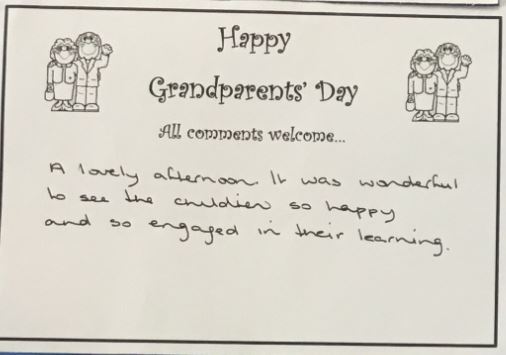 Happy
Grandparents' Day
All comments welcome...
A lovely afternoon. It was wonderful
to see the children so happy
and so engaged in their learning.